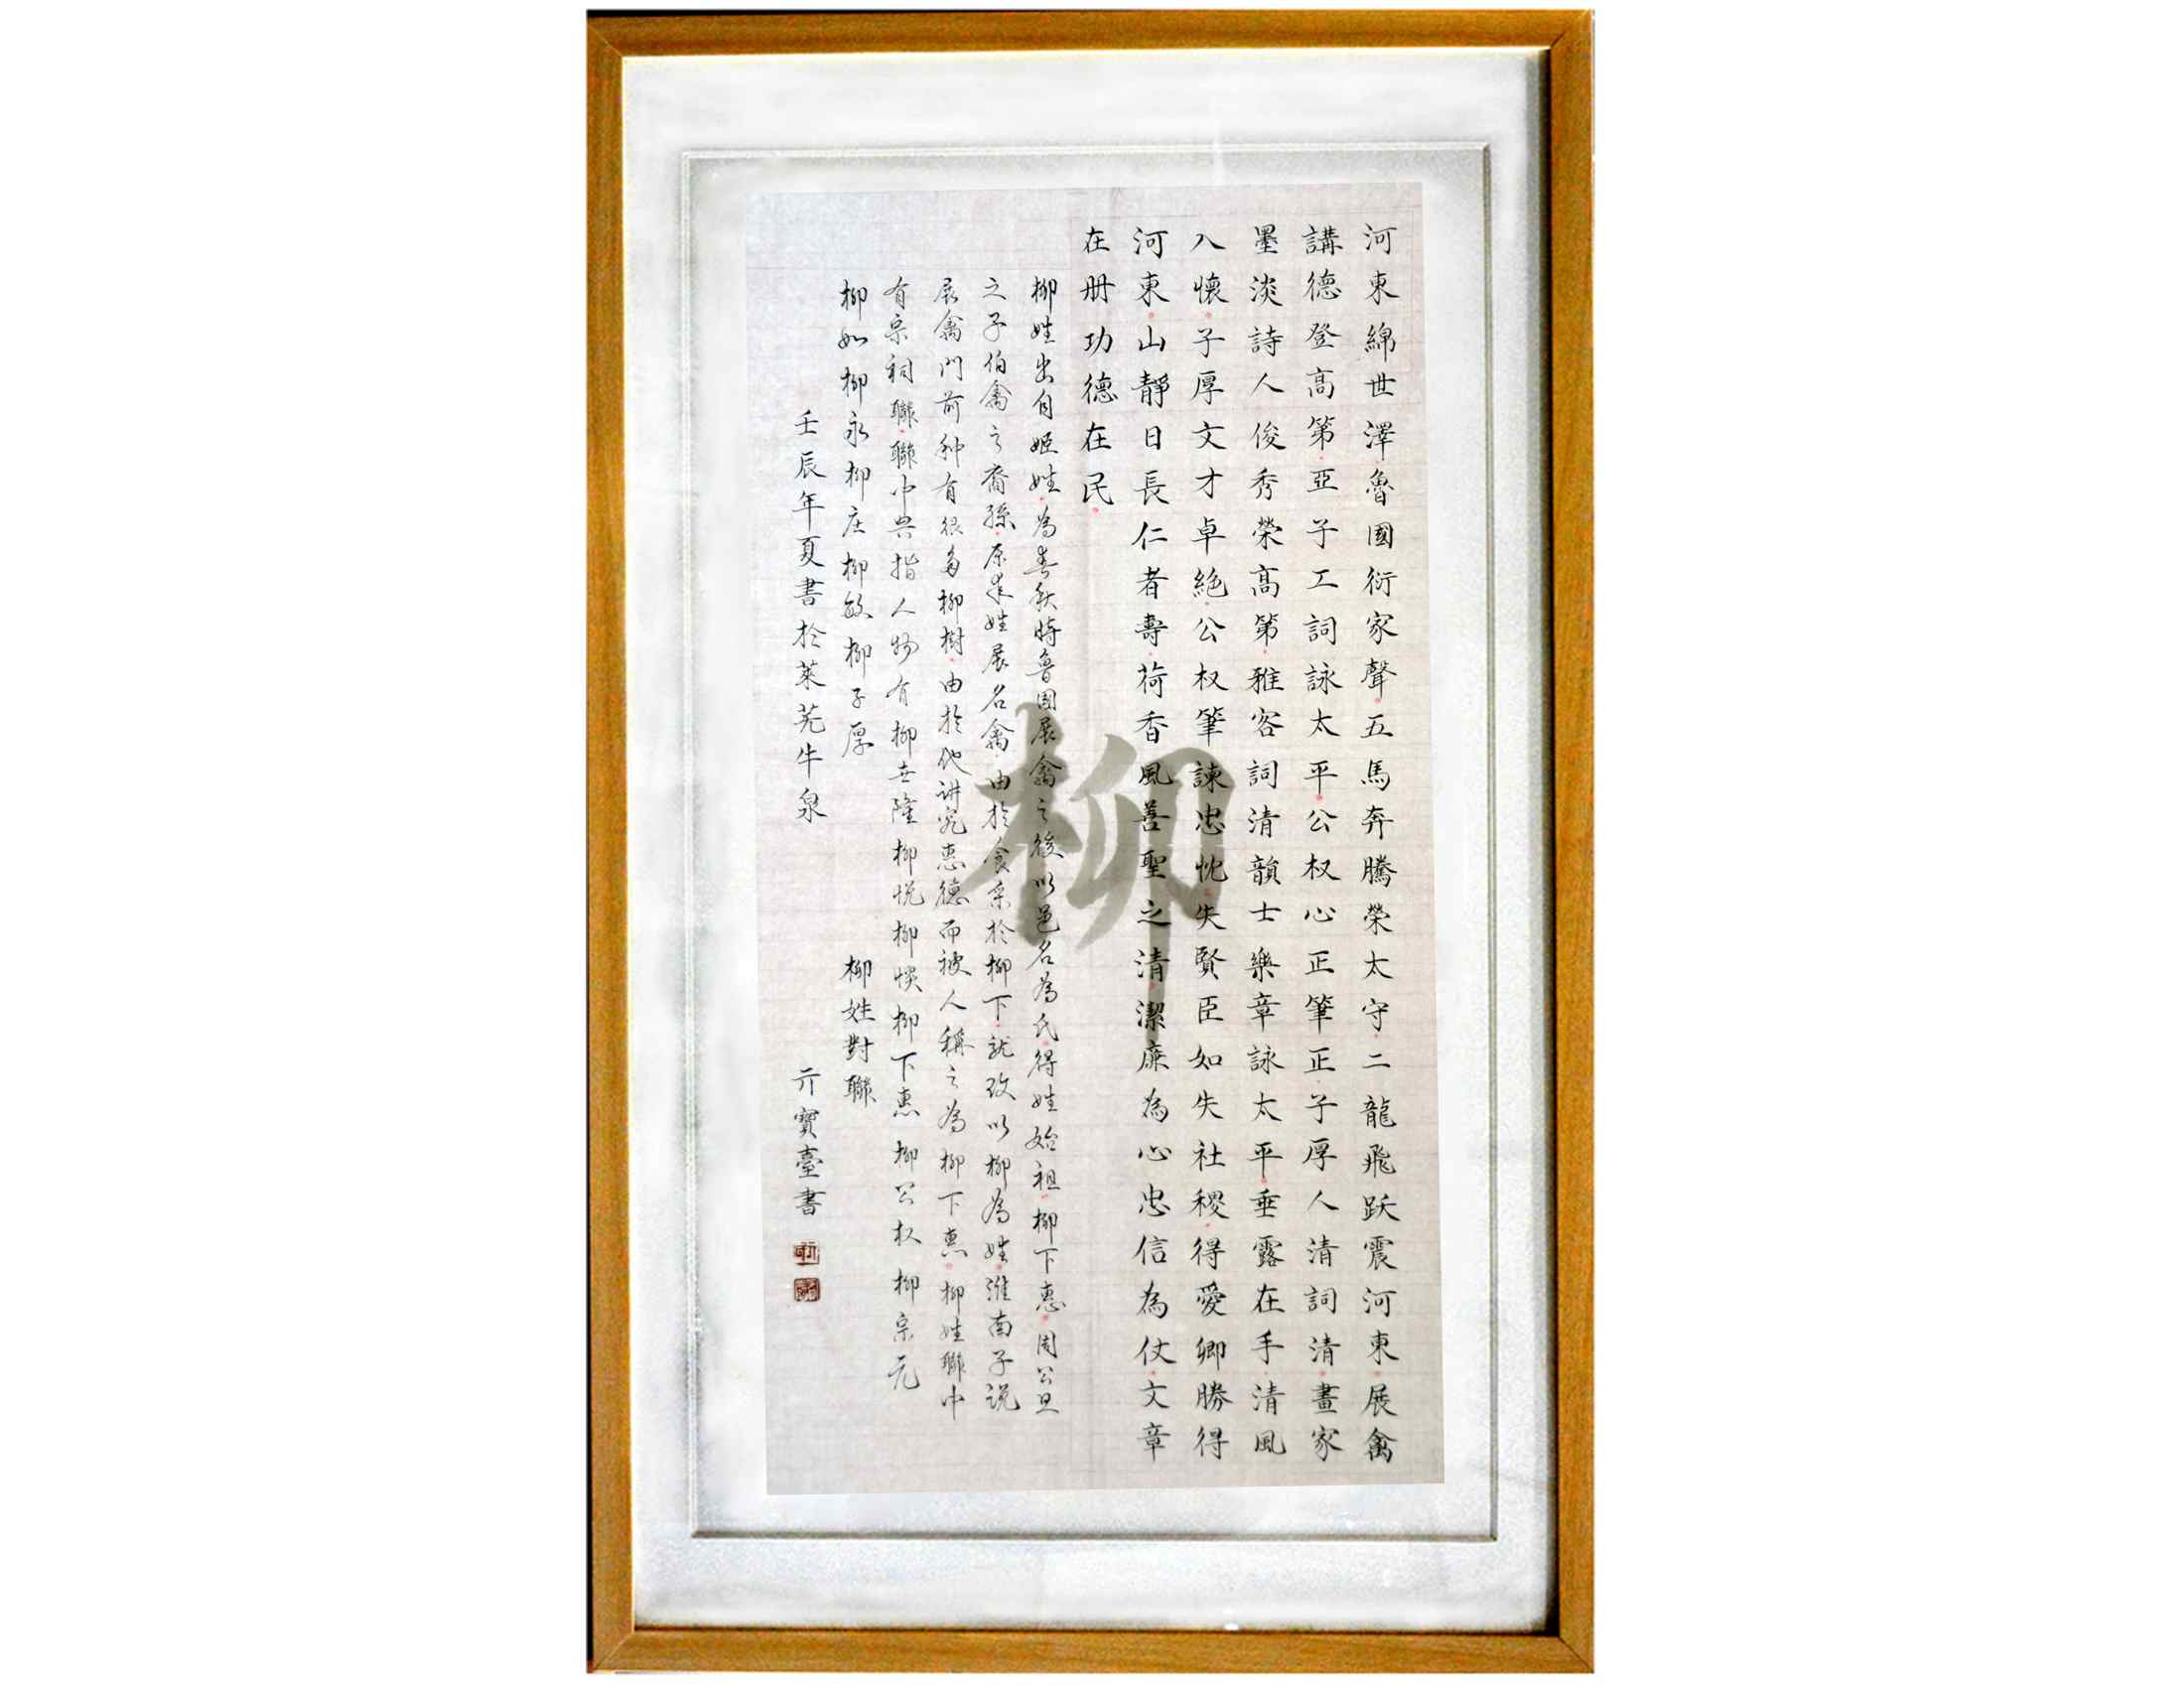 河東綿世澤魯國衍家聲五馬奔騰榮太守二龍飛跃震河東展禽
講德登高第亞子工詞詠太平公权心正筆正子厚人清詞清畫家
墨淡詩人俊秀榮高第雅客詞清韻士樂章詠太平垂露在手清風
入懷子厚文才卓絶公权筆諫忠忱失賢臣如失社稷得愛卿勝得
河東山靜日長仁者壽荷香風善聖之清潔廉為心忠信為仗文章
在册功德在民
柳姓出自姬姓為春秋時魯國展禽之後以邑名為氏得姓始祖柳下惠周公旦
之子伯禽之裔孫原來姓展名禽由於食采於柳下就改以柳為姓淮南子説
展禽門前种有很多柳樹由於他讲究惠德而被人稱之為柳下惠柳姓聯中
有宗祠聯聯中典指人物有柳世隆柳悦柳惔柳下惠柳公权柳宗元
柳如柳永柳庄柳敏柳子厚
柳姓對聯
壬辰年夏書於萊芜牛泉
亓寶臺書
柳